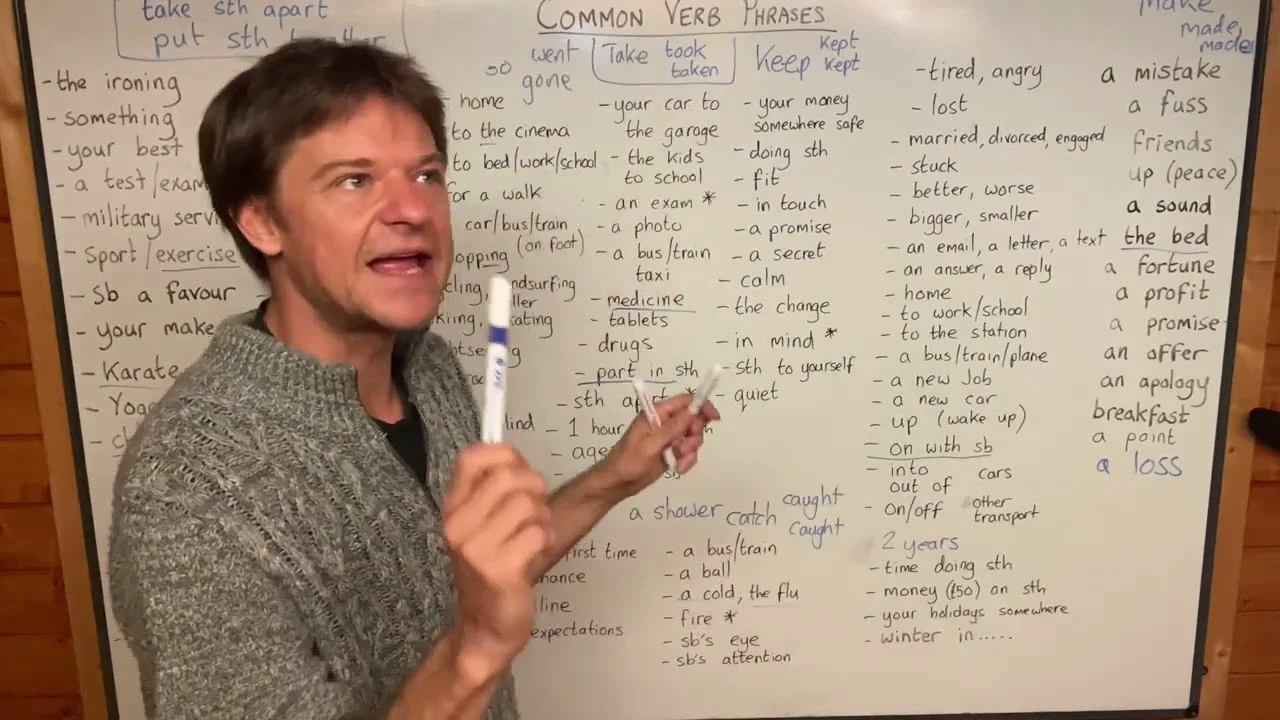 take sth apart
put sth
COMMON VERB PHRASES
Make
made
made
- the ironing
- something
- your best
- a test/exam
- military servi
- Sport/exercise
- Sb a favour
- your make
- Karate
- Yog
went
gone
home
to the cinema
to bed/work/school
for a walk
car/bus/train
(on foot)
Take took
taken
- your car to
the garage
- the kids
to school
- an exam *
- a photo
- a bus/train
taxi
- medicine
- tablets
- drugs
- part in sth
- sth apart *
- 1 hour
- age
a shower
Keep kept
kept
- your money
somewhere safe
- doing sth
- fit
- in touch
- a promise
- a secret
- calm
- the change
- in mind *
- sth to yourself
- quiet
first time
line
expectations
catch caught
caught
- a bus/train
- a ball
- a cold, the flu
- fire *
- sb's eye
- sb's attention
- tired, angry
- lost
- married, divorced, engaged
- stuck
- better, worse
- bigger, smaller
- an email, a letter, a text
- an answer, a reply
- home
- to work/school
- to the station
- a bus/train/plane
- a new Job
- a new car
- up (wake up)
- on with sb
- into cars
out of
- on/off other
transport
2 years
- time doing sth
- money (£50) on sth
- your holidays somewhere
- winter in.....
a mistake
a fuss
friends
up (peace)
a sound
the bed
a fortune
a profit
a promise
an offer
an apology
breakfast
a point
a loss